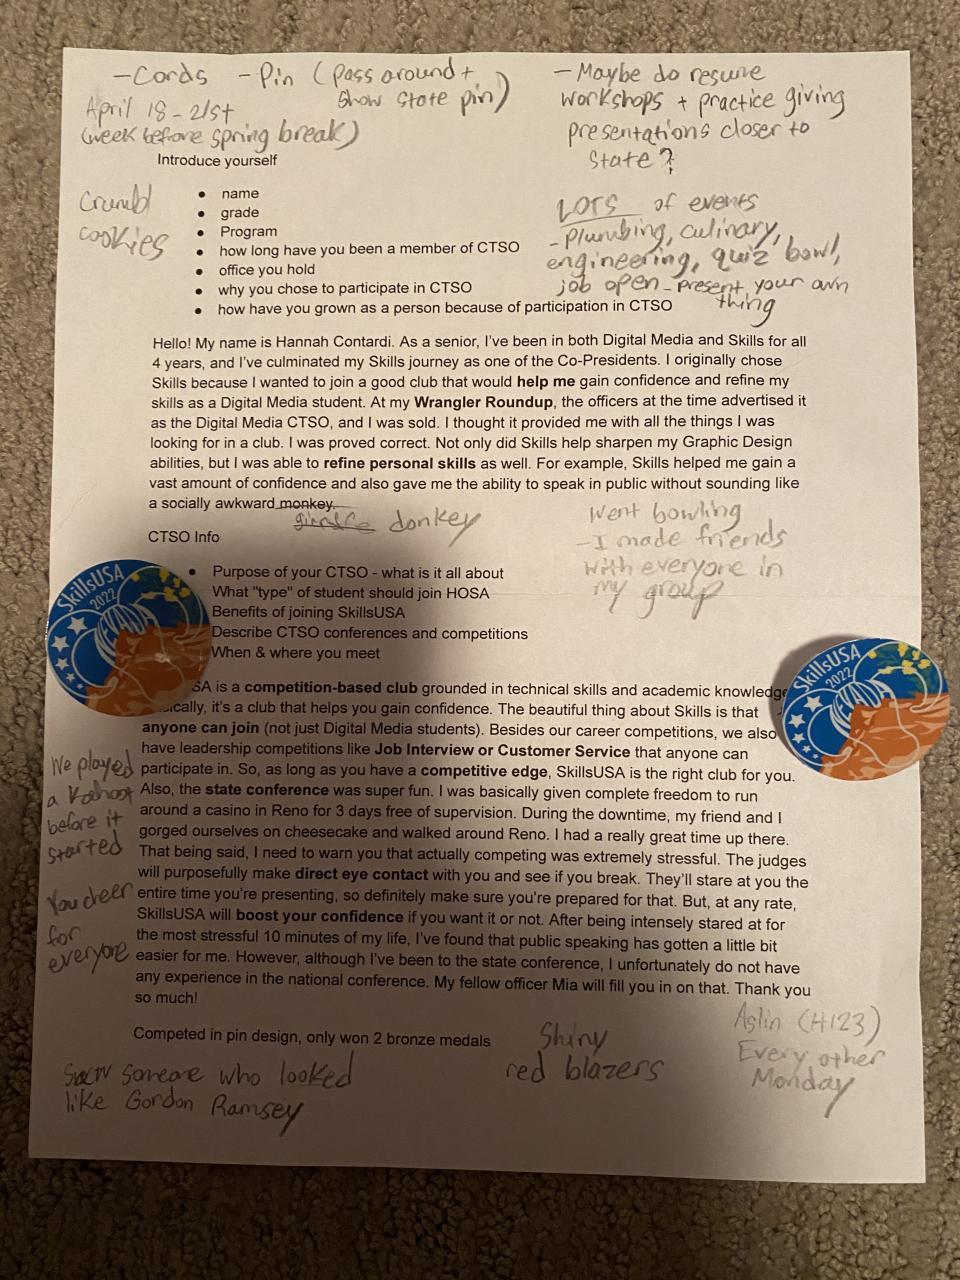 - Cords - Pin (pass around +
show state pin)
April 18 - 21st
(week before spring break)
- Maybe do resume
workshops + practice giving
presentations closer to
State?
Introduce yourself
Crumbl
cookies
● name
● grade
● Program
● how long have you been a member of CTSO
● office you hold
● why you chose to participate in CTSO
● how have you grown as a person because of participation in CTSO
LOTS of events
- Plumbing, culinary,
engineering, quiz bowl,
job open - present your own
thing
Hello! My name is Hannah Contardi. As a senior, I've been in both Digital Media and Skills for all
4 years, and I've culminated my Skills journey as one of the Co-Presidents. I originally chose
Skills because I wanted to join a good club that would help me gain confidence and refine my
skills as a Digital Media student. At my Wrangler Roundup, the officers at the time advertised it
as the Digital Media CTSO, and I was sold. I thought it provided me with all the things I was
looking for in a club. I was proved correct. Not only did Skills help sharpen my Graphic Design
abilities, but I was able to refine personal skills as well. For example, Skills helped me gain a
vast amount of confidence and also gave me the ability to speak in public without sounding like
a socially awkward monkey.
giraffe donkey
Went bowling
- I made friends
with everyone in
my group
CTSO Info
● Purpose of your CTSO - what is it all about
What "type" of student should join HOSA
Benefits of joining SkillsUSA
Describe CTSO conferences and competitions
When & where you meet
SkillsUSA
2022
NEVADA
SkillsUSA
2022
NEVADA
SA is a competition-based club grounded in technical skills and academic knowledge
ically, it's a club that helps you gain confidence. The beautiful thing about Skills is that
anyone can join (not just Digital Media students). Besides our career competitions, we also
have leadership competitions like Job Interview or Customer Service that anyone can
participate in. So, as long as you have a competitive edge, SkillsUSA is the right club for you.
Also, the state conference was super fun. I was basically given complete freedom to run
around a casino in Reno for 3 days free of supervision. During the downtime, my friend and I
gorged ourselves on cheesecake and walked around Reno. I had a really great time up there.
That being said, I need to warn you that actually competing was extremely stressful. The judges
will purposefully make direct eye contact with you and see if you break. They'll stare at you the
entire time you're presenting, so definitely make sure you're prepared for that. But, at any rate,
SkillsUSA will boost your confidence if you want it or not. After being intensely stared at for
the most stressful 10 minutes of my life, I've found that public speaking has gotten a little bit
easier for me. However, although I've been to the state conference, I unfortunately do not have
any experience in the national conference. My fellow officer Mia will fill you in on that. Thank you
so much!
We played
a Kahoot
before it
started
You cheer
for
everyone
Competed in pin design, only won 2 bronze medals
Saw someone who looked
like Gordon Ramsey
Shiny
red blazers
Aslin (H123)
Every other
Monday